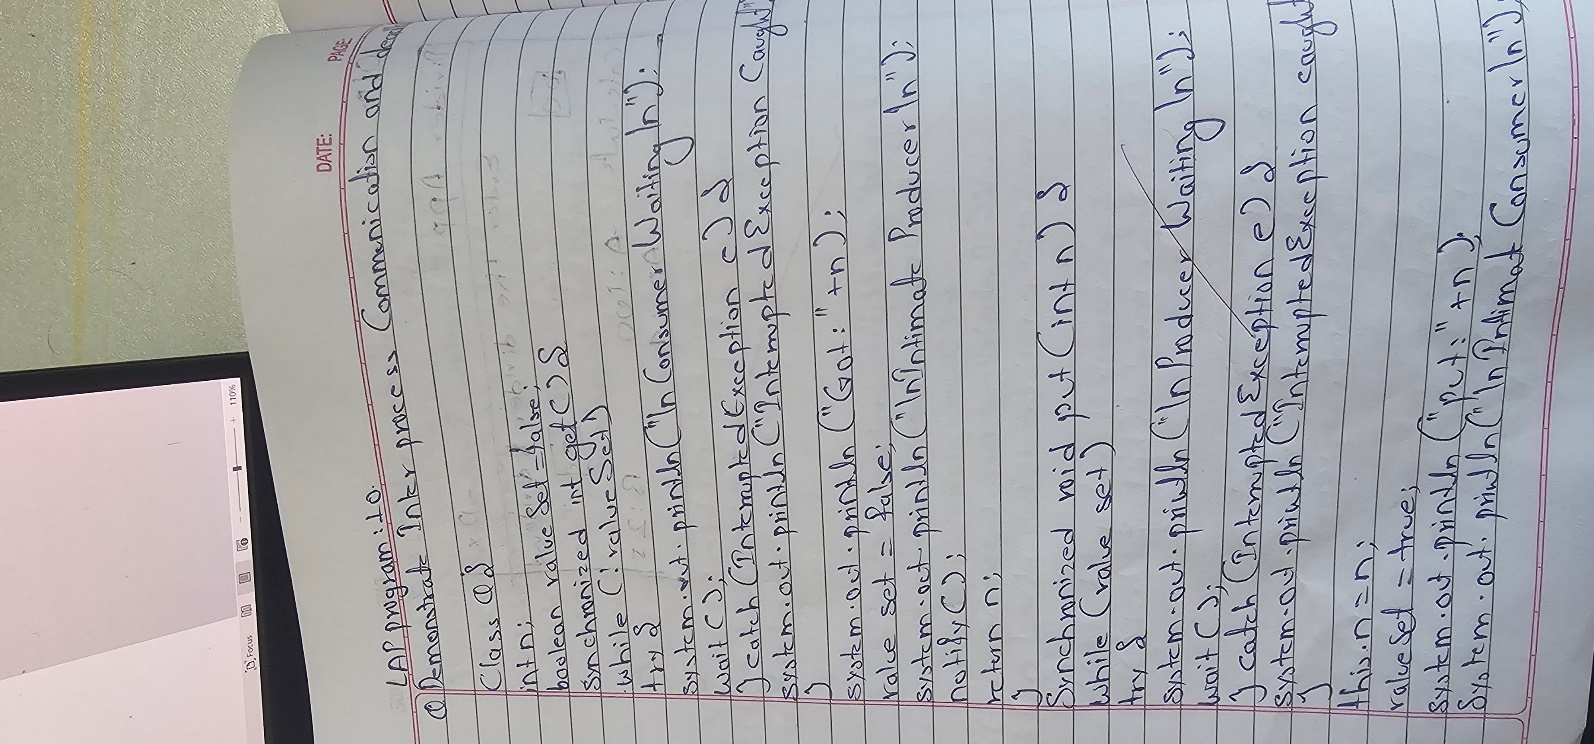 DATE:
PAGE
LAB program: 10.
① Demonstrate Inter process Communication and
Class Q {
int n;
boolean value Set = false;
Synchronized int get () {
while (! value Set)
try {
system.out.println ("In Consumer Waiting In");
wait ();
} catch (Interrupted Exception e) {
system.out.println ("Interrupted Exception Caught"
}
system.out.println ("Got:" +n);
value set = false;
system.out.println ("In Intimate Producer In");
notify ();
return n;
}
Synchronized void put (int n) {
while (value set)
try {
system.out.println ("In Producer Waiting In");
wait ();
} catch (Interrupted Exception e) {
system.out.println ("Interrupted Exception caught
}
this.n = n;
value Set = true;
system.out.println ("put:" +n);
System.out.println ("In Intimat Consumer In");
Focus
110%